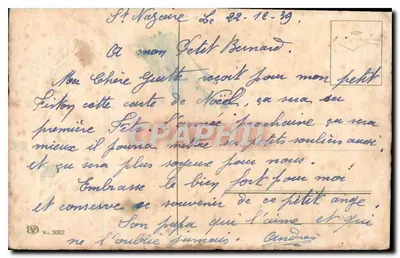 St Nazaire Le 22-12-39
A mon Petit Bernard.
Mon Chère Guitte reçoit pour mon petit
Fiston cette carte de Noël, ça sera sa
première Fête l'année prochaine ça sera
mieux il pourra mettre ses petits souliers aussi
et ça sera plus joyeux pour nous.
Embrasse le bien fort pour moi
et conserve ce souvenir de ce petit ange.
Son papa qui l'aime et qui
ne l'oublie jamais. André
No. 3082